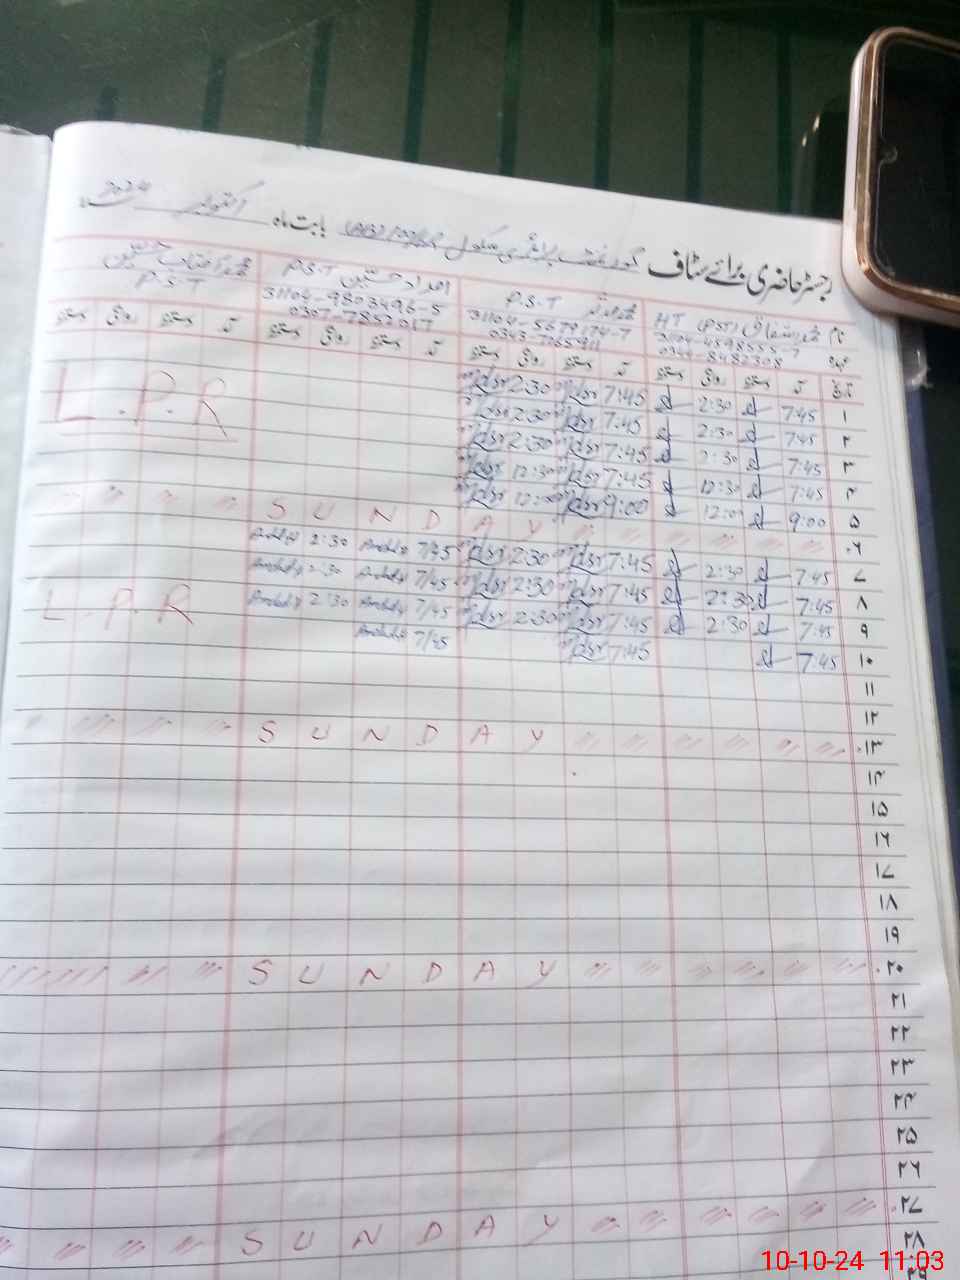 رجسٹر حاضری برائے سٹاف گورنمنٹ پرائمری سکول بابت ماہ اکتوبر 2024
نام
HT (PST)
P.S.T
امداد حسین P.S.T
P.S.T
31104-4598555-7
31104-5679174-7
31104-9803496-5
0344-8482308
0343-7165911
0307-7852017
تاریخ آمد دستخط روانگی دستخط آمد دستخط روانگی دستخط آمد دستخط روانگی دستخط آمد دستخط روانگی دستخط
۱ 7:45 2:30 7:45 2:30
۲ 7:45 2:30 7:45 2:30
L.P.R
۳ 7:45 2:30 7:45 2:30
۴ 7:45 12:30 7:45 12:30
۵ 9:00 12:00 9:00 12:00
۶ SUNDAY
۷ 7:45 2:30 7:45 2:30 7/45 2:30
۸ 7:45 2:30 7:45 2:30 7/45 2:30
L.P.R
۹ 7:45 2:30 7:45 2:30 7/45 2:30
۱۰ 7:45 7:45 7/45
۱۱
۱۲
۱۳ SUNDAY
۱۴
۱۵
۱۶
۱۷
۱۸
۱۹
۲۰ SUNDAY
۲۱
۲۲
۲۳
۲۴
۲۵
۲۶
۲۷ SUNDAY
۲۸
۲۹
10-10-24 11:03